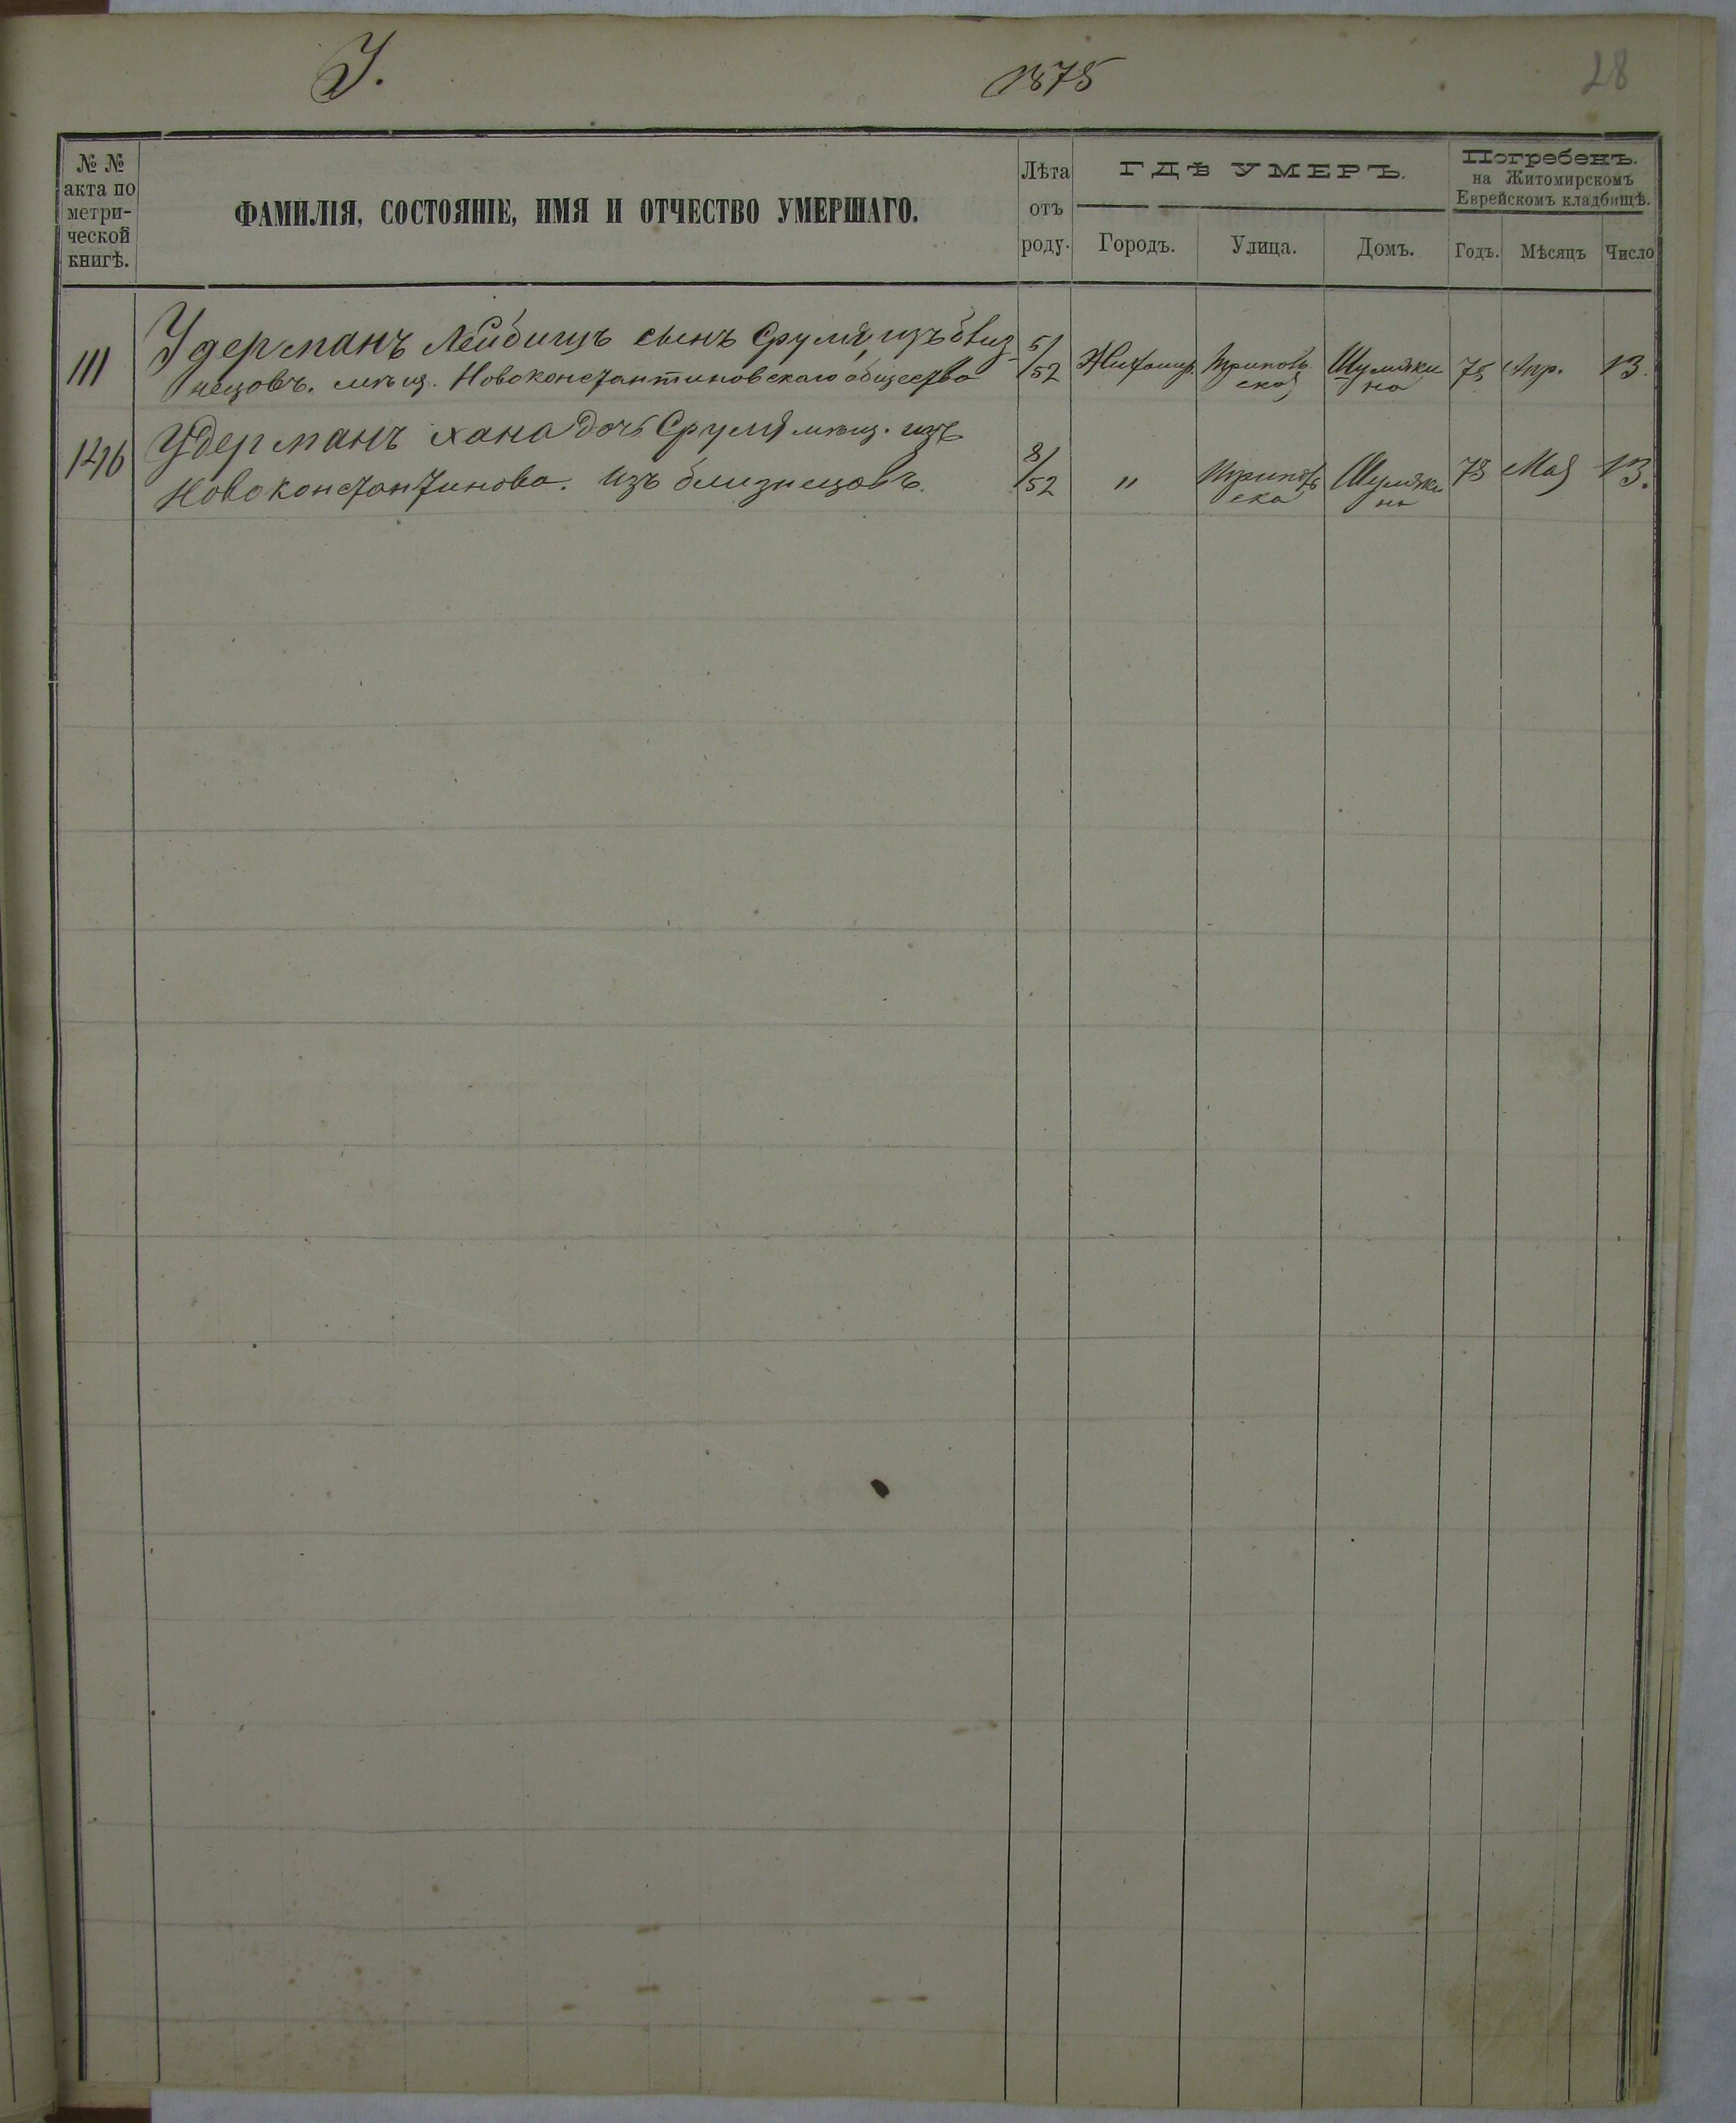 У. 1875 28
№ №
акта по
метри-
ческой
книгѣ.
ФАМИЛІЯ, СОСТОЯНІЕ, ИМЯ И ОТЧЕСТВО УМЕРШАГО.
Лѣта
отъ
роду.
ГДѢ УМЕРЪ.
Городъ. Улица. Домъ.
Погребенъ.
на Житомирскомъ
Еврейскомъ кладбищѣ.
Годъ. Мѣсяцъ Число
111 Удерманъ Лейбишъ сынъ Сруля, изъ близ- 5/52 Житомир. Чудновск 75 Апр. 13.
нецовъ. мѣщ. Новоконстантиновскаго общества
146 Удерманъ Хана дочь Сруля мѣщ. изъ
Новоконстантинова. изъ близнецовъ. 8/52 " 75 Мая 13.